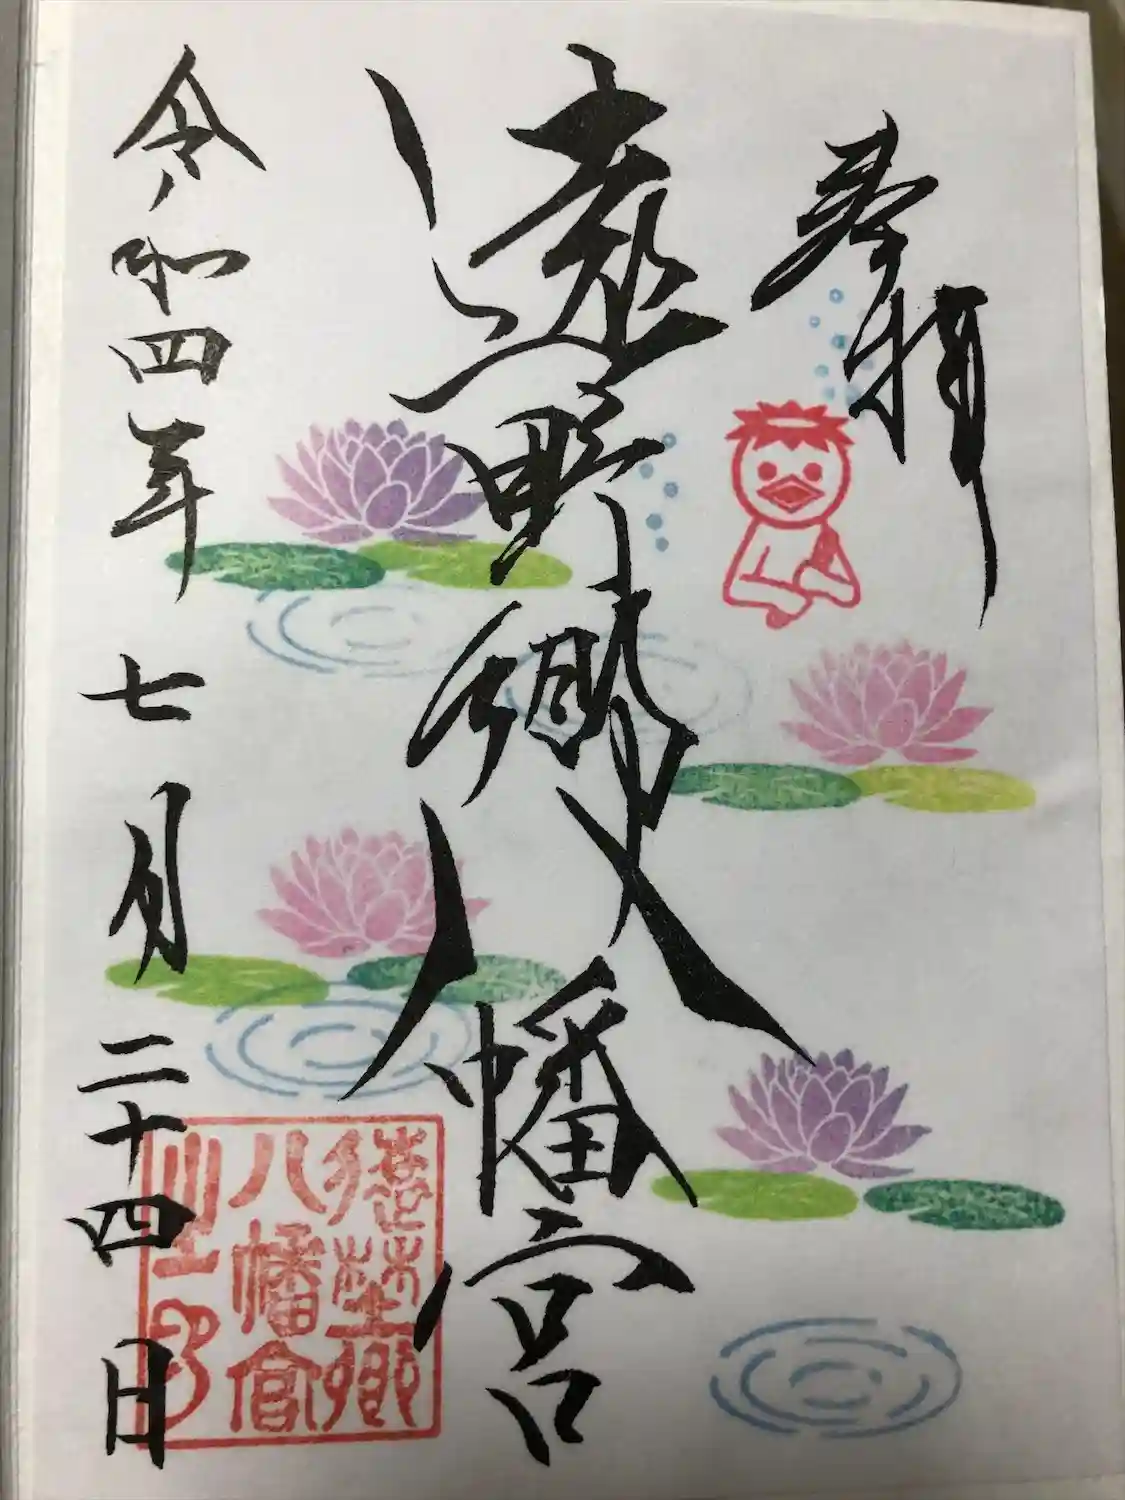 奉拝
遠野郷八幡宮
令和四年七月二十四日
遠野郷
八幡宮
之印